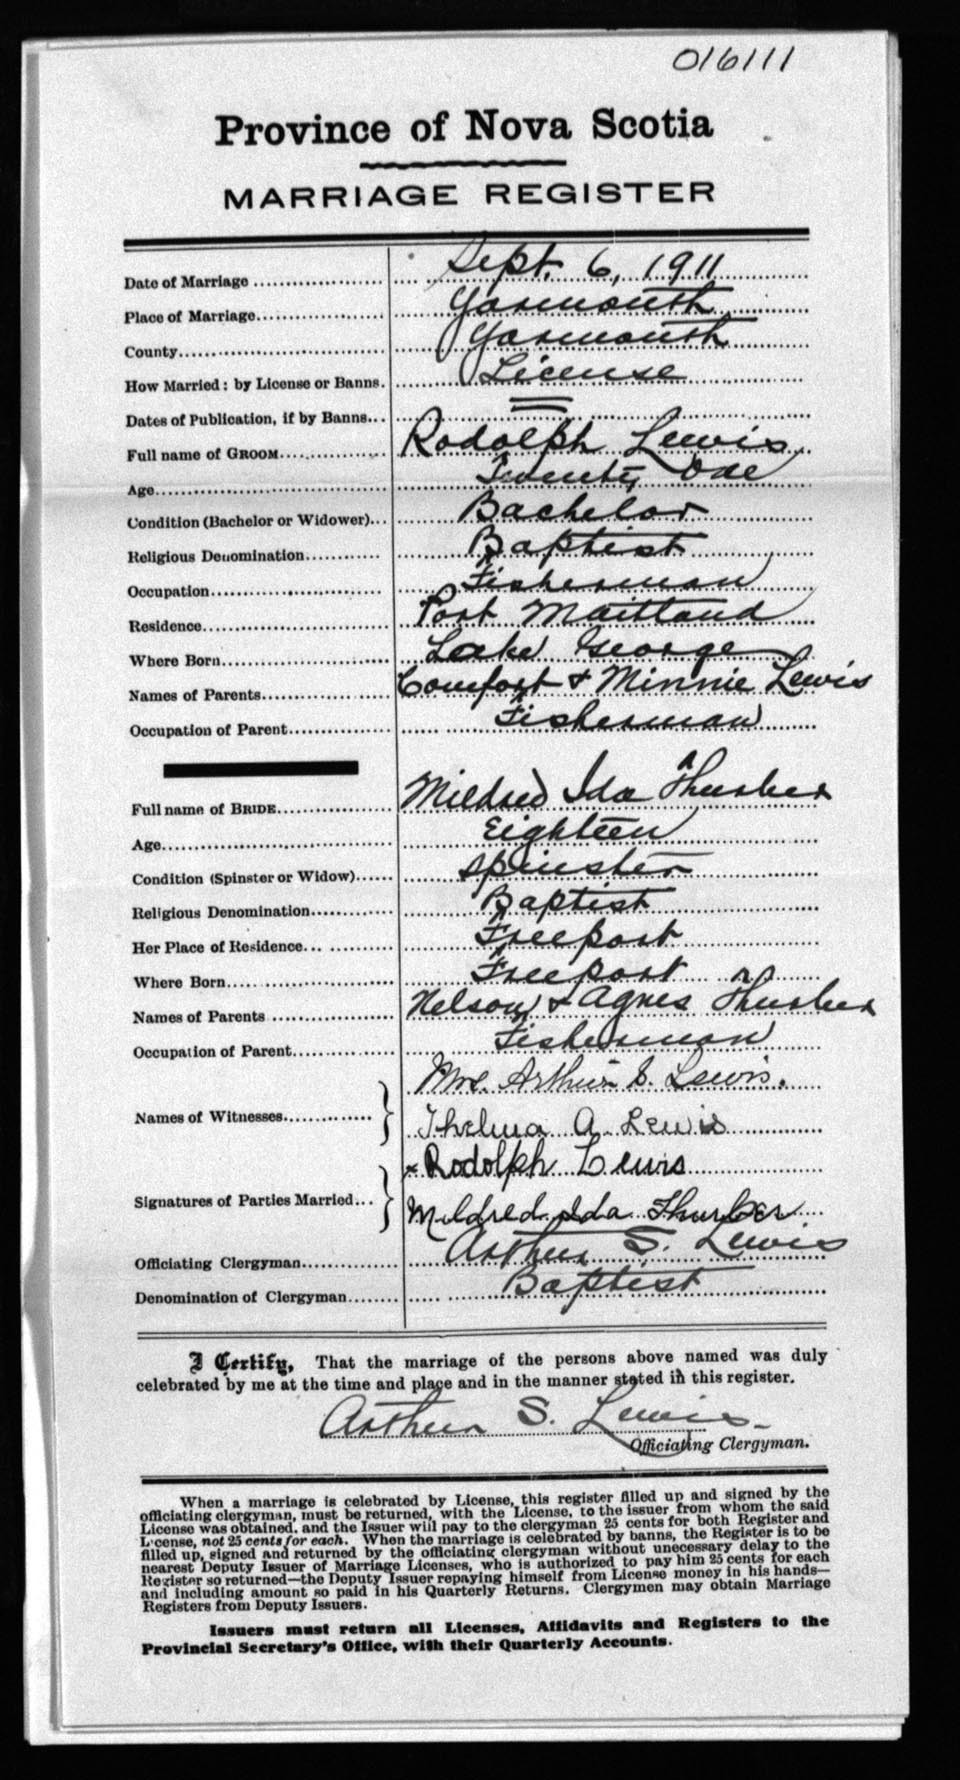 016111
Province of Nova Scotia
MARRIAGE REGISTER
Date of Marriage Sept. 6, 1911
Place of Marriage Yarmouth
County Yarmouth
How Married: by License or Banns. License
Dates of Publication, if by Banns
Full name of GROOM Rodolph Lewis
Age Twenty One
Condition (Bachelor or Widower) Bachelor
Religious Denomination Baptist
Occupation Fisherman
Residence Port Maitland
Where Born Lake George
Names of Parents Comfort & Minnie Lewis
Occupation of Parent Fisherman
Full name of BRIDE Mildred Ida Thurber
Age Eighteen
Condition (Spinster or Widow) Spinster
Religious Denomination Baptist
Her Place of Residence Freeport
Where Born Freeport
Names of Parents Nelson & Agnes Thurber
Occupation of Parent Fisherman
Names of Witnesses Mrs. Arthur S. Lewis.
Thelma A. Lewis
Signatures of Parties Married x Rodolph Lewis
Mildred Ida Thurber
Officiating Clergyman Arthur S. Lewis
Denomination of Clergyman Baptist
I Certify, That the marriage of the persons above named was duly
celebrated by me at the time and place and in the manner stated in this register.
Arthur S. Lewis
Officiating Clergyman.
When a marriage is celebrated by License, this register filled up and signed by the
officiating clergyman, must be returned, with the License, to the issuer from whom the said
License was obtained, and the Issuer will pay to the clergyman 25 cents for both Register and
License, not 25 cents for each. When the marriage is celebrated by banns, the Register is to be
filled up, signed and returned by the officiating clergyman without unecessary delay to the
nearest Deputy Issuer of Marriage Licenses, who is authorized to pay him 25 cents for each
Register so returned—the Deputy Issuer repaying himself from License money in his hands—
and including amount so paid in his Quarterly Returns. Clergymen may obtain Marriage
Registers from Deputy Issuers.
Issuers must return all Licenses, Affidavits and Registers to the
Provincial Secretary's Office, with their Quarterly Accounts.